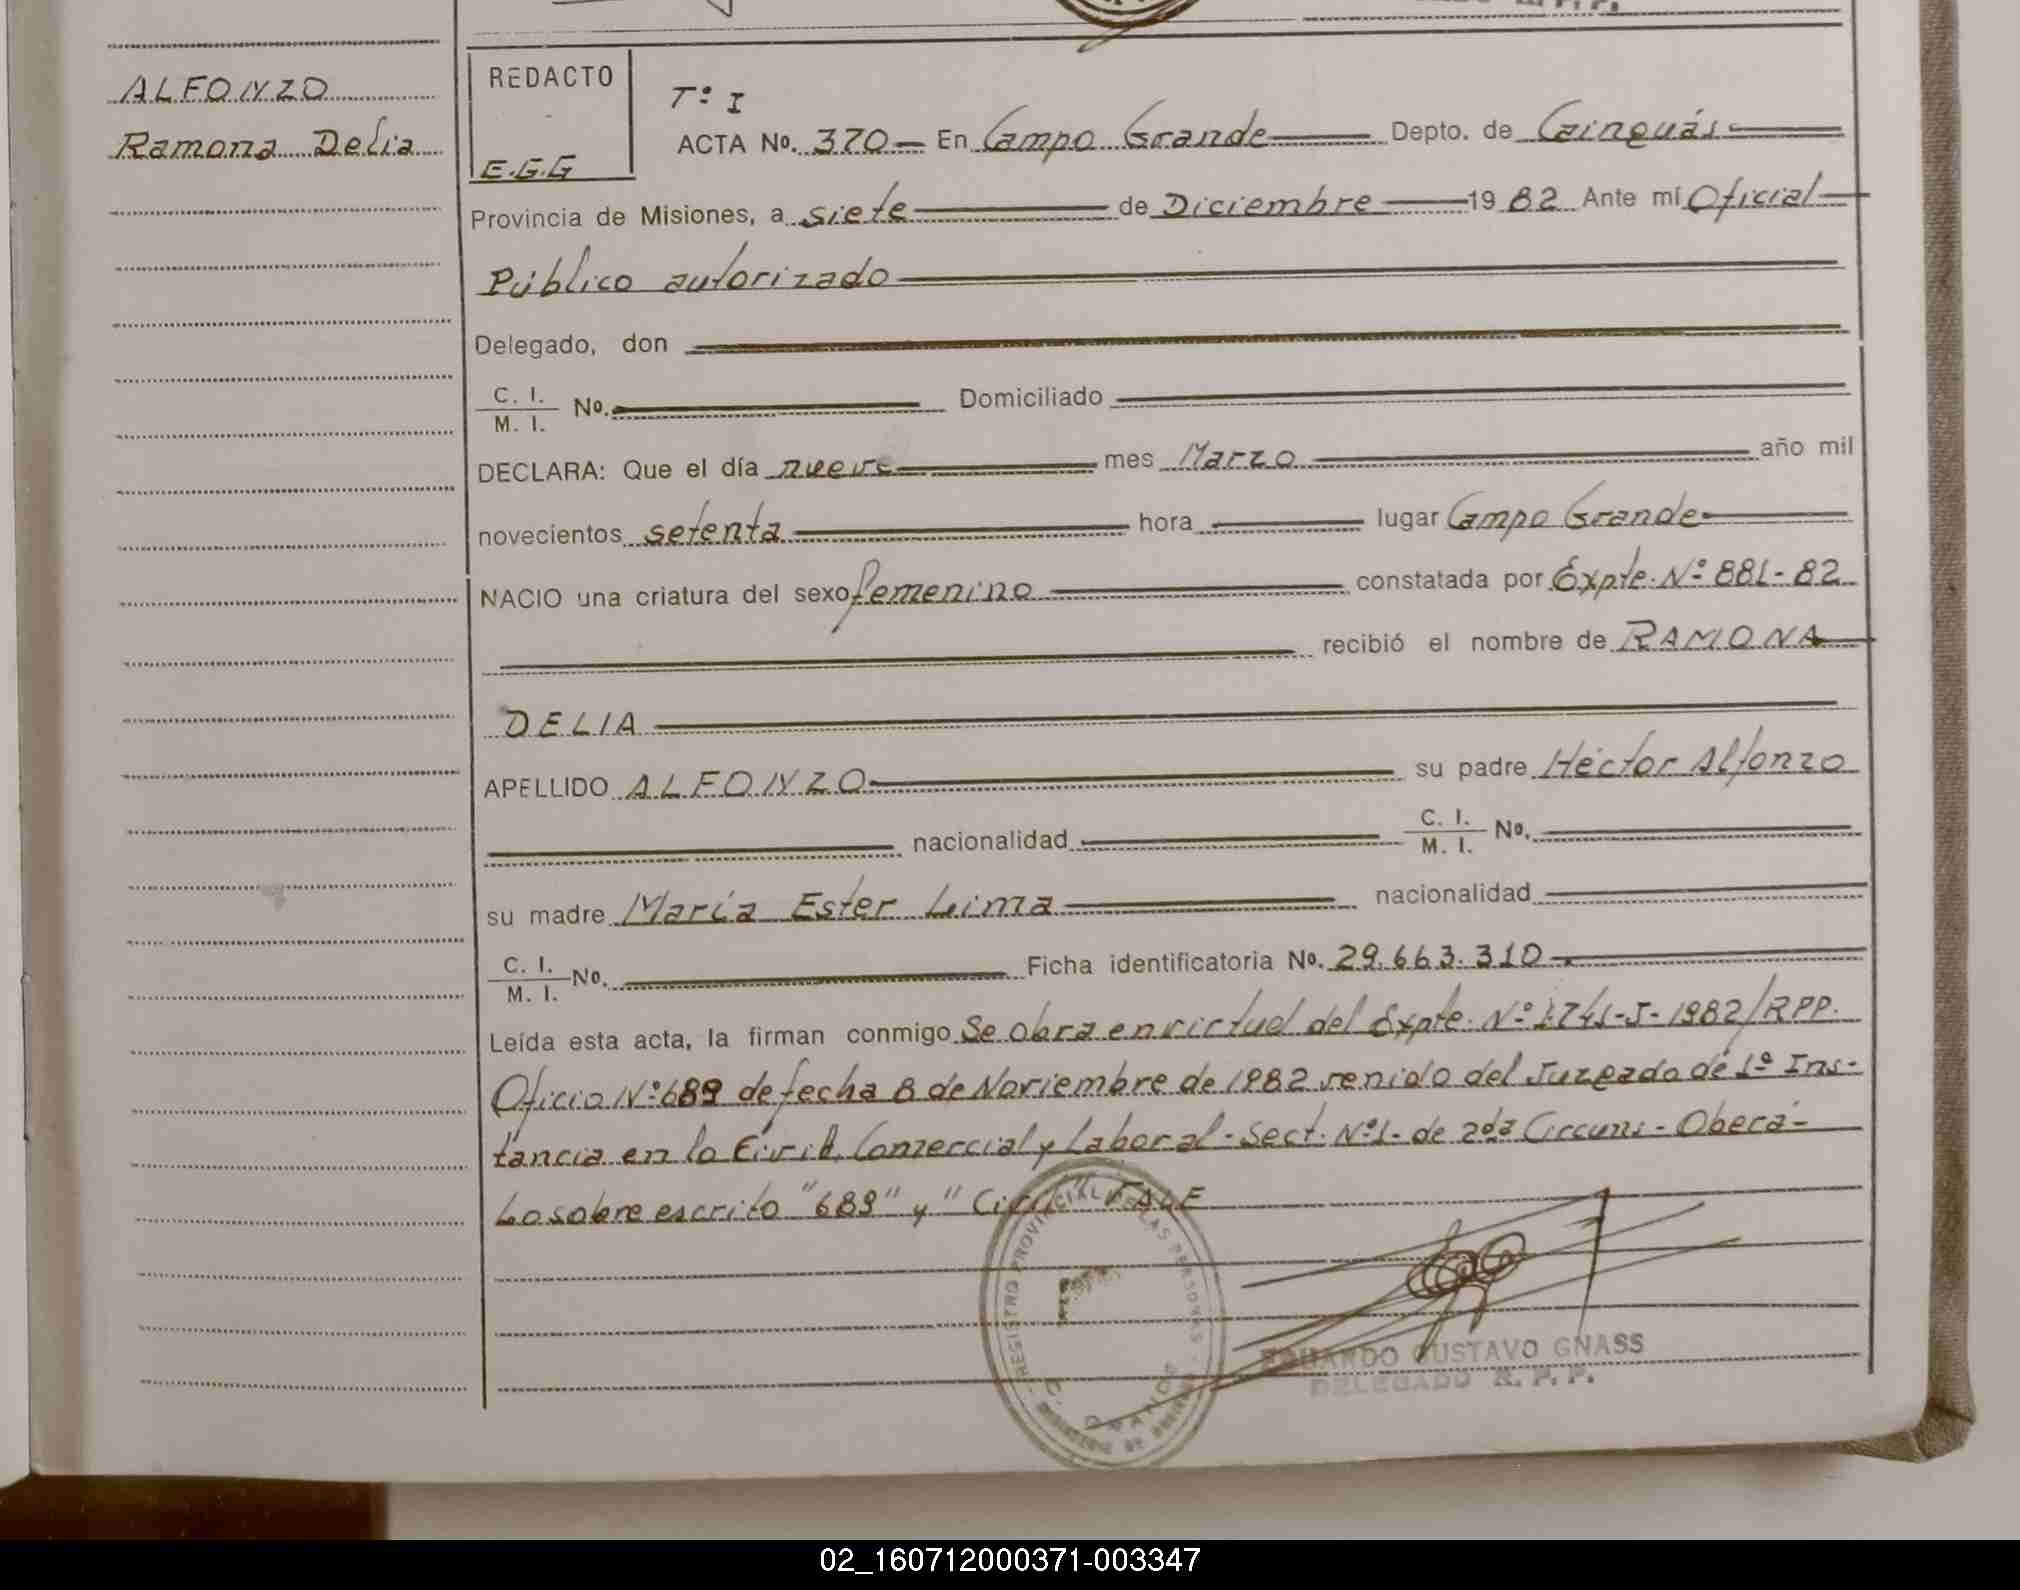 ALFONZO
Ramona Delia
REDACTO
E.G.G
Tº I
ACTA No. 370 En Campo Grande Depto. de Cainguás
Provincia de Misiones, a siete de Diciembre 1982 Ante mí Oficial
Público autorizado
Delegado, don
C. I.
M. I. No. Domiciliado
DECLARA: Que el día nueve mes Marzo año mil
novecientos setenta hora lugar Campo Grande
NACIO una criatura del sexo femenino constatada por Expte. Nº 881-82
recibió el nombre de RAMONA
DELIA
APELLIDO ALFONZO su padre Héctor Alfonzo
nacionalidad C. I.
M. I. No.
su madre María Ester Lima nacionalidad
C. I.
M. I. No. Ficha identificatoria No. 29.663.310
Leída esta acta, la firman conmigo Se obra en virtud del Expte. Nº 1741-J-1982/RPP.
Oficio Nº 689 de fecha 8 de Noviembre de 1982 venido del Juzgado de 1º Ins-
tancia en lo Civil, Comercial y Laboral - Sect. Nº1- de 2da Circuns - Oberá-
Lo sobre escrito "689" y "Civil" VALE
REGISTRO PROVINCIAL DE LAS PERSONAS
C. GRANDE
EDUARDO GUSTAVO GNASS
DELEGADO R. P. P.
02_160712000371-003347